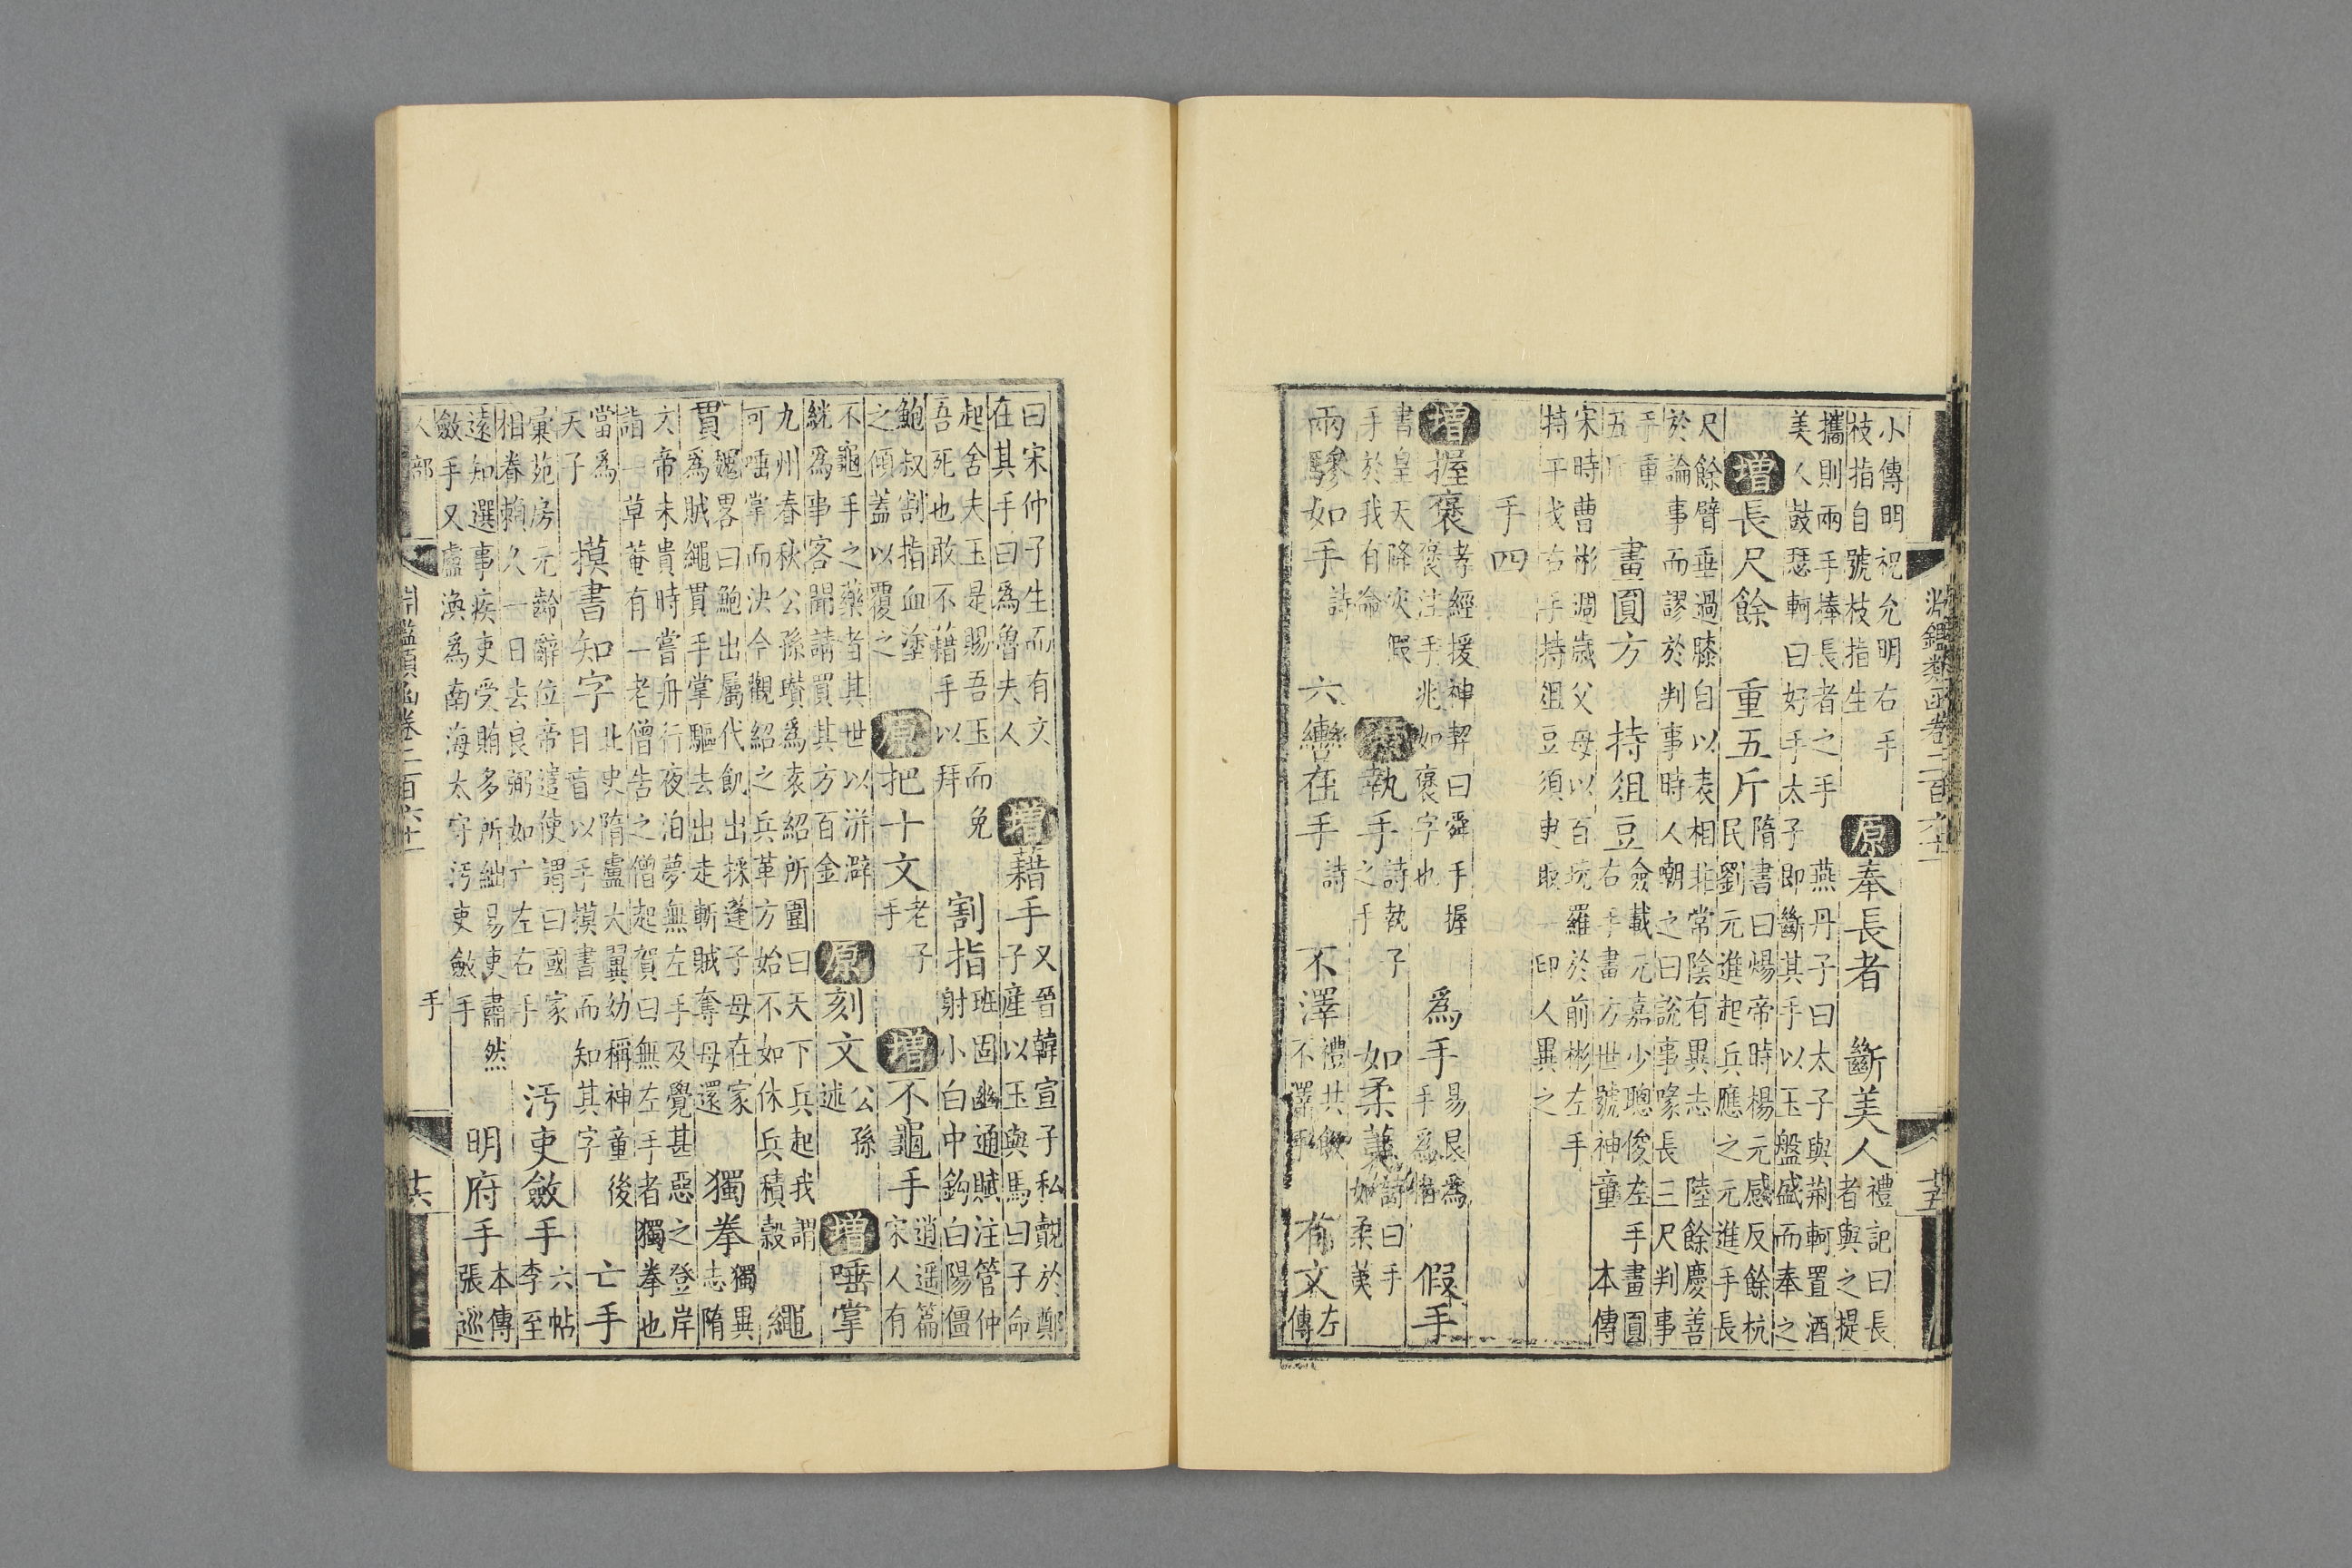 淵鑑類函卷二百六十一
小傳明祝允明右手
枝指自號枝指生
原奉長者
斷美人
禮記曰長
者與之提
攜則兩手捧長者之手
燕丹子曰太子與荆軻置酒
美人鼓瑟軻曰好手太子即斷其手以玉盤盛而奉之
增長尺餘
重五斤
隋書曰煬帝時楊元感反餘杭
民劉元進起兵應之元進手長
尺餘臂垂過膝自以表相非常陰有異志
陸餘慶善
於論事而謬於判事時人嘲之曰說事喙長三尺判事
手重
五斤
畫圓方
持俎豆
僉載元嘉少聰俊左手畫圓
右手畫方世號神童
本傳
宋時曹彬週歲父母以百玩羅於前彬左手
持干戈右手持俎豆須臾取一印人異之
手四
增握褒
孝經援神契曰舜手握
褒注手兆如褒字也
爲手
易艮爲
手爲指
假手
書皇天降災假
手於我有命
執手
詩執子
之手
如柔荑
詩曰手
如柔荑
兩驂如手
詩
六轡在手
詩
不澤
禮共飯
不澤手
有文
左
傳
曰宋仲子生而有文
在其手曰爲魯夫人
增藉手
又晉韓宣子私覿於鄭
子產以玉與馬曰子命
起舍夫玉是賜吾玉而免
吾死也敢不藉手以拜
割指
班固幽通賦注管仲
射小白中鉤白陽僵
鮑叔割指血塗
之傾蓋以覆之
原把十文
老子
手
增不龜手
逍遥篇
宋人有
不龜手之藥者其世以洴澼
絖爲事客聞請買其方百金
原刻文
公孫
述
增唾掌
九州春秋公孫瓚爲袁紹所圍曰天下兵起我謂
可唾掌而決今觀紹之兵革方始不如休兵積穀
繩
貫
魏畧曰鮑出屬代飢出採蓬子母在家
爲賊繩貫手掌驅去出走斬賊奪母還
獨拳
獨異
志隋
文帝未貴時嘗舟行夜泊夢無左手及覺甚惡之登岸
詣一草菴有一老僧告之僧起賀曰無左手者獨拳也
當爲
天子
摸書知字
北史隋盧大翼幼稱神童後
目盲以手摸書而知其字
亡手
彙苑房元齡辭位帝遣使謂曰國家
相眷賴久一日去良弼如亡左右手
汚吏斂手
六帖
李至
遠知選事疾吏受賄多所絀易吏肅然
斂手又盧渙爲南海太守汚吏斂手
明府手
本傳
張巡
人部
淵鑑類函卷二百六十一
手